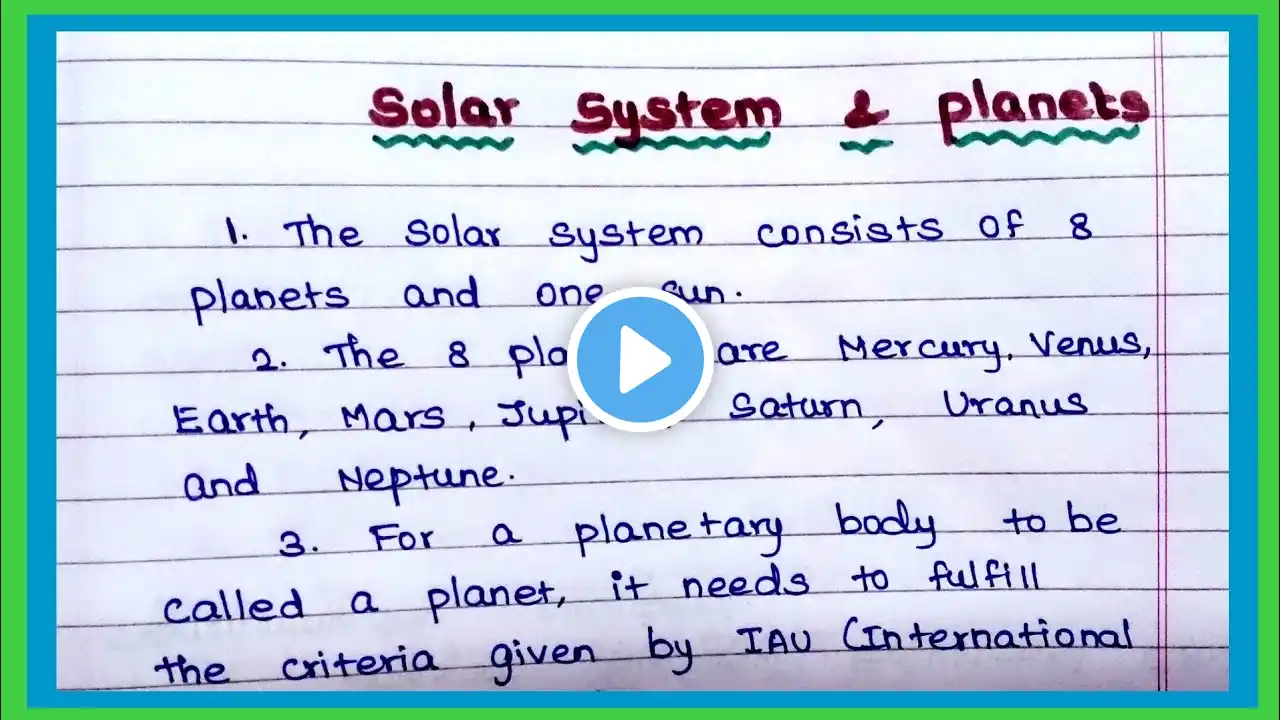 Solar System & planets
1. The solar system consists of 8
planets and one sun.
2. The 8 pla are Mercury. Venus,
Earth, Mars, Jupi Saturn, Uranus
and Neptune.
3. For a planetary body to be
called a planet, it needs to fulfill
the criteria given by IAU (International